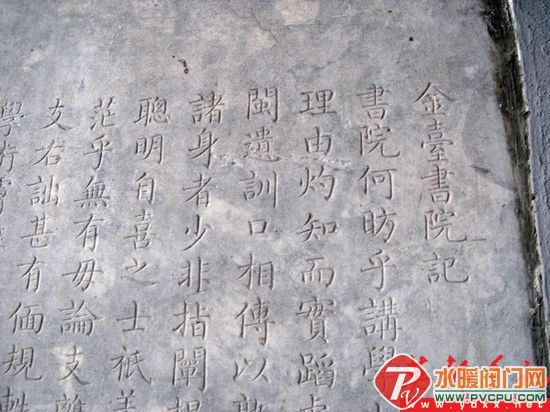 金臺書院記
書院何昉乎講學
理由灼知而實蹈
閩遺訓口相傳以
諸身者少非指闡
聰明自喜之士祇
茫乎無有毋論支離
支右詘甚有偭規
學
水暖阀门网
www.pvcpu.com